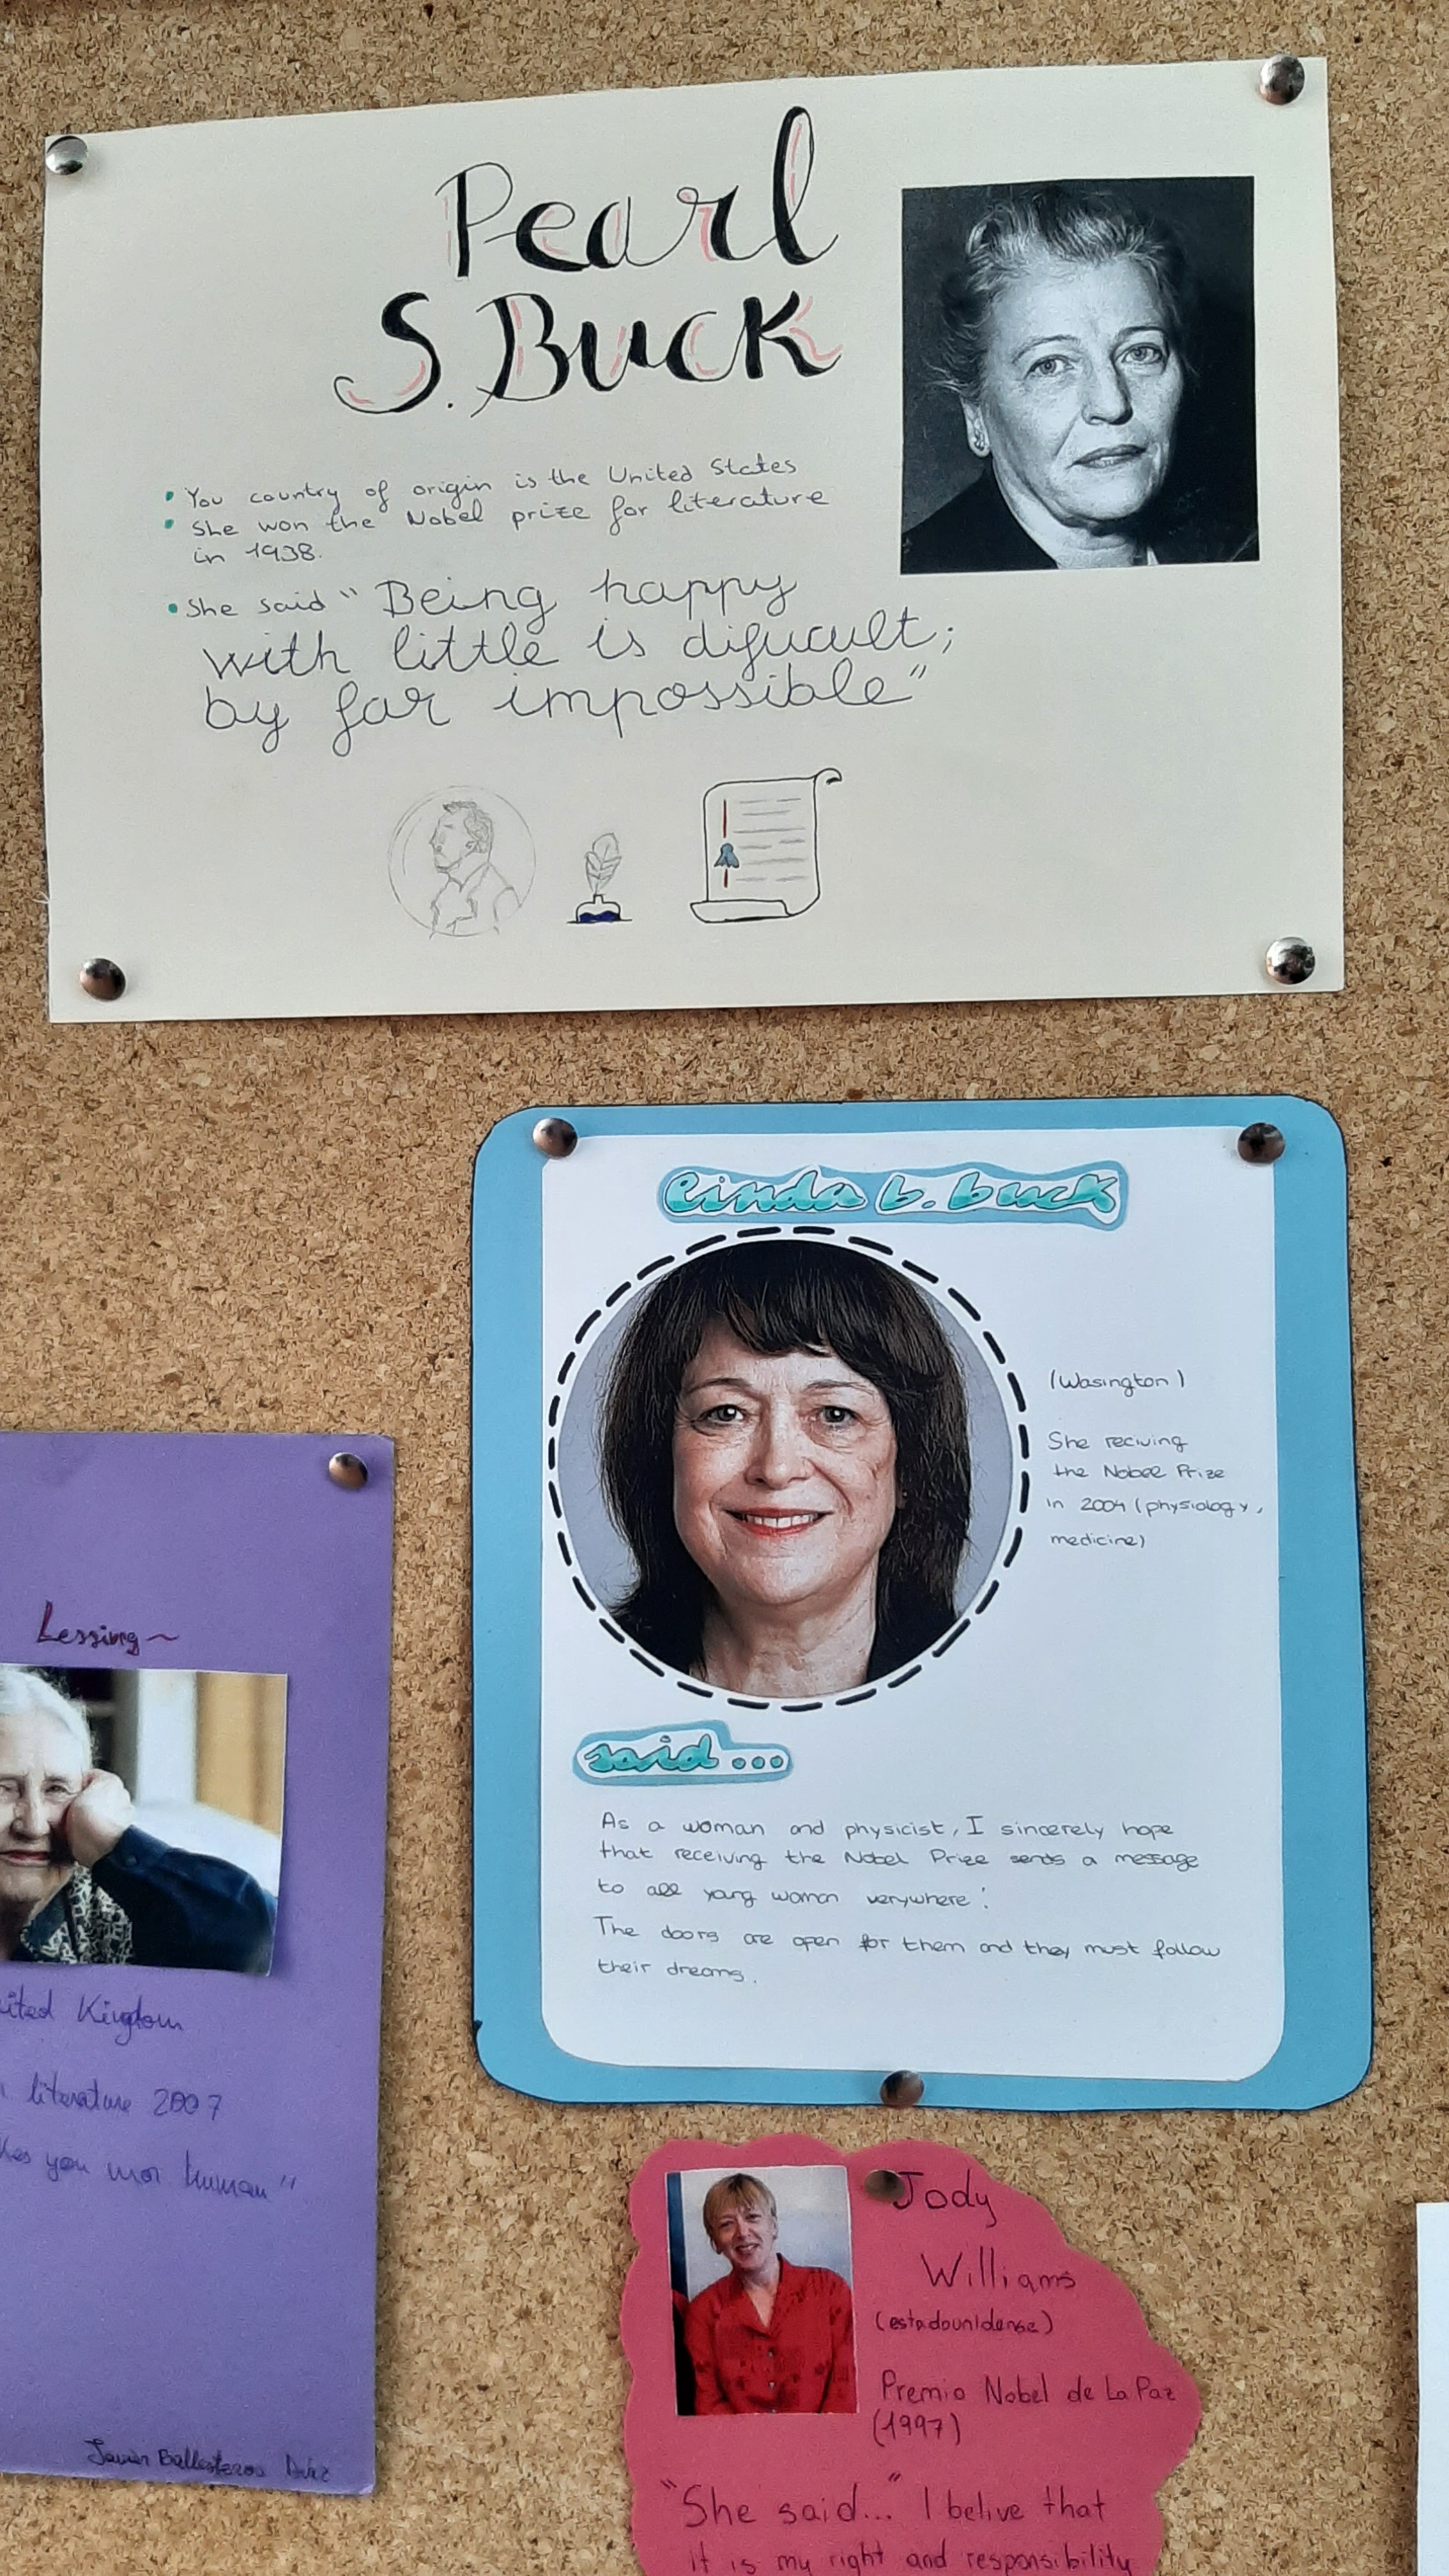 Pearl
S. Buck
• You country of origin is the United States
• She won the Nobel prize for literature
in 1938.
• She said "Being happy
with little is dificult;
by far impossible"
linda b. buck
(Wasington)
She reciving
the Nobel Prize
in 2004 (physiology,
medicine)
said...
As a woman and physicist, I sincerely hope
that receiving the Nobel Prize sends a message
to all young woman verywhere:
The doors are open for them and they must follow
their dreams.
Lessing~
ited Kingdom
literature 2007
kes you mor human"
Ballesteros
Jody
Williams
(estadounidense)
Premio Nobel de La Paz
(1997)
"She said..." I belive that
it is my right and responsibility